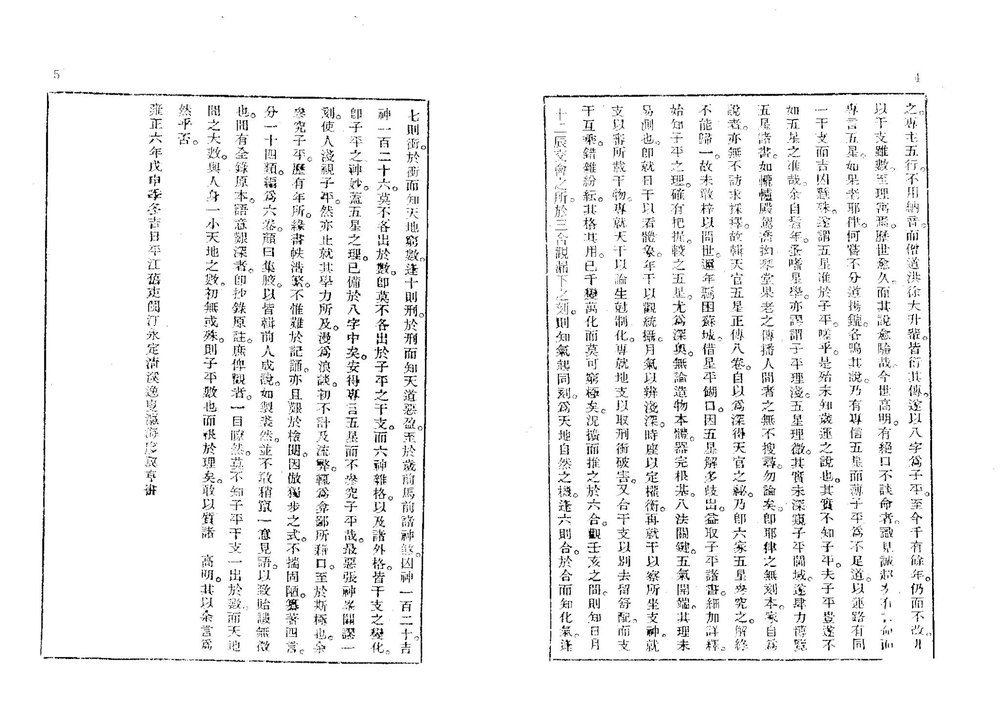 4
之專主五行。不用納音。而僧道洪徐大升輩。皆衍其傳。遂以八字為子平。至今千有餘年。仍而不改。
以干支雖數。至理寓焉。歷世愈久。而其說愈驗哉。今世高明。有絕口不談命者。識見誠超
專言五星。如果老耶律。何嘗不分道揚鑣。各鳴其說。乃有專信五星而薄子平。為不足道。以運路有同
一干支而吉凶懸殊。遂謂五星準於子平。嗟乎。是殆未知歲運之說也。其實不知子平。夫子平豈遂不
如五星之準哉。余自髫年。酷嗜星學。亦謬謂子平理淺。五星理微。其實未深窺子平閫域。遂肆力博覽
五星諸書。如 殿駕 琴堂果老之傳播人間者。之無不搜尋。勿論矣。即耶律之無刻本。家自為
說者。亦無不訪求採擇。故輯天官五星正傳八卷。自以為深得天官之秘。乃即六家五星參究之。解終
不能歸一。故未敢梓以問世。邇年羈困蘇城。借星平餬口。因五星解多歧出。益取子平諸書。細加詳釋。
始知子平之理。確有把握。較之五星。尤為深奧。無論造物本體。器完根基。八法關鍵。五氣開端。其理未
易測也。即就日干以看體象。年干以觀統攝。月氣以辨淺深。時座以定權衡。再就干以察所坐支神。就
支以審所載干物。專就天干以論生尅制化。專就地支以取刑衝破害。又合干支以別去留舒配。而支
干互乘。錯雜紛紜。其格其用。已千變萬化而莫可窮極矣。況擴而推之。於六合。觀壬亥之間。則知日月
十二辰交會之所。於三合。觀漏下之刻。則知氣起同刻。為天地自然之機。逢六則合。於合而知化氣。逢
5
七則衝。於衝而知天地窮數。逢十則刑。於刑而知天道惡盈。至於歲前馬前諸神煞。凶神一百二十。吉
神一百二十六。莫不各出於數。即莫不各出於子平之干支。而六神雜格。以及諸外格。皆干支之變化。
即子平之神妙。蓋五星之理。已備於八字中矣。安得專言五星而不參究子平哉。最惡張神峯闢謬一
刻。使人淺視子平。然亦止就其學力所及。漫為浪談。初不計及流弊。輒為弇鄙所藉口。至於斯極也。余
參究子平。歷有年所。緣書帙浩繁。不惟難於記誦。亦且難於檢閱。因倣獨步之式。不揣固陋。纂著四言。
分一十四類。編為六卷。顏曰集腋。以皆輯前人成說。如製裘然。並不敢稍竄一意見語。以致貽譏無徵
也。間有全錄原本。語意艱深者。即抄錄原註。庶俾觀者。一目瞭然。莫不知子平干支。一出於數。而天地
間之大數。與人身一小天地之數。初無或殊。則子平數也。而根於理矣。敢以質諸　高明。其以余言為
然乎否。
雍正六年戊申季冬吉日平江舊吏閩汀永定